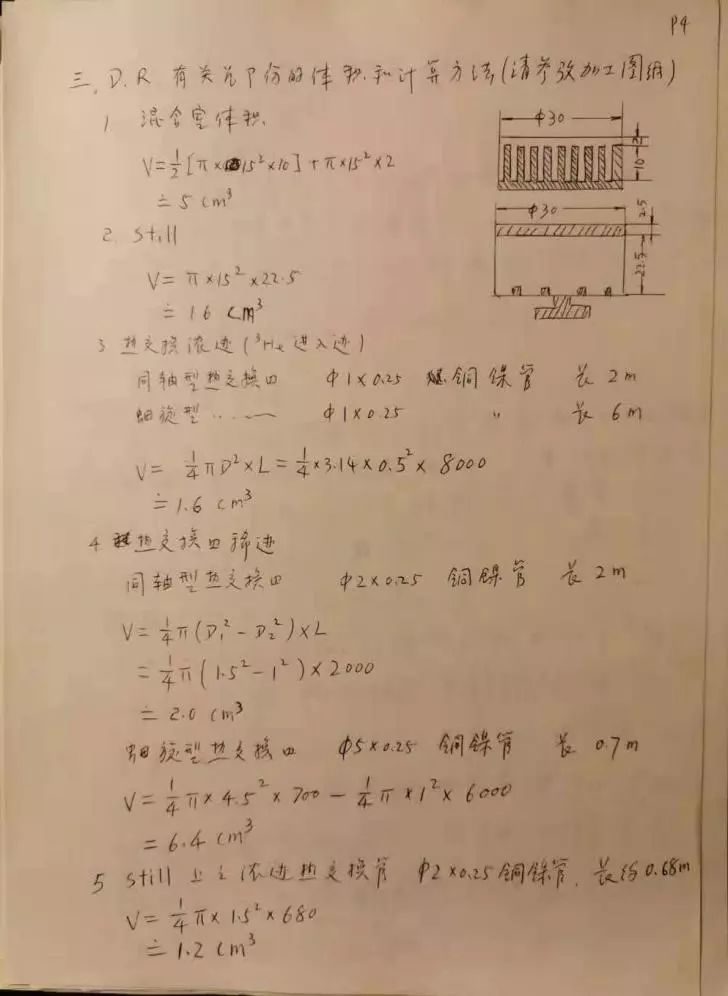 P4
三、D.R. 有关各部份的体积和计算方法(请参考加工图纸)
1 混合室体积
V=½[π×15²×10]+π×15²×2
≐ 5 cm³
Φ30
2
10
2. Still
V= π×15²×22.5
≐ 16 cm³
Φ30
2.5
22.5
3 热交换浓边(³He 进入边)
同轴型热交换器 Φ1×0.25 铜镍管 长 2m
细旋型 ..... Φ1×0.25 " 长 6m
V= ¼πD²×L=¼×3.14×0.5²×8000
≐ 1.6 cm³
4 热交换器稀边
同轴型热交换器 Φ2×0.25 铜镍管 长 2m
V=¼π(D₁²-D₂²)×L
=¼π(1.5²-1²)×2000
≐ 2.0 cm³
细旋型热交换器 Φ5×0.25 铜镍管 长 0.7m
V=¼π×4.5²×700-¼π×1²×6000
= 6.4 cm³
5 Still 上之浓边热交换管 Φ2×0.25铜镍管, 长约0.68m
V=¼π×1.5²×680
≐ 1.2 cm³